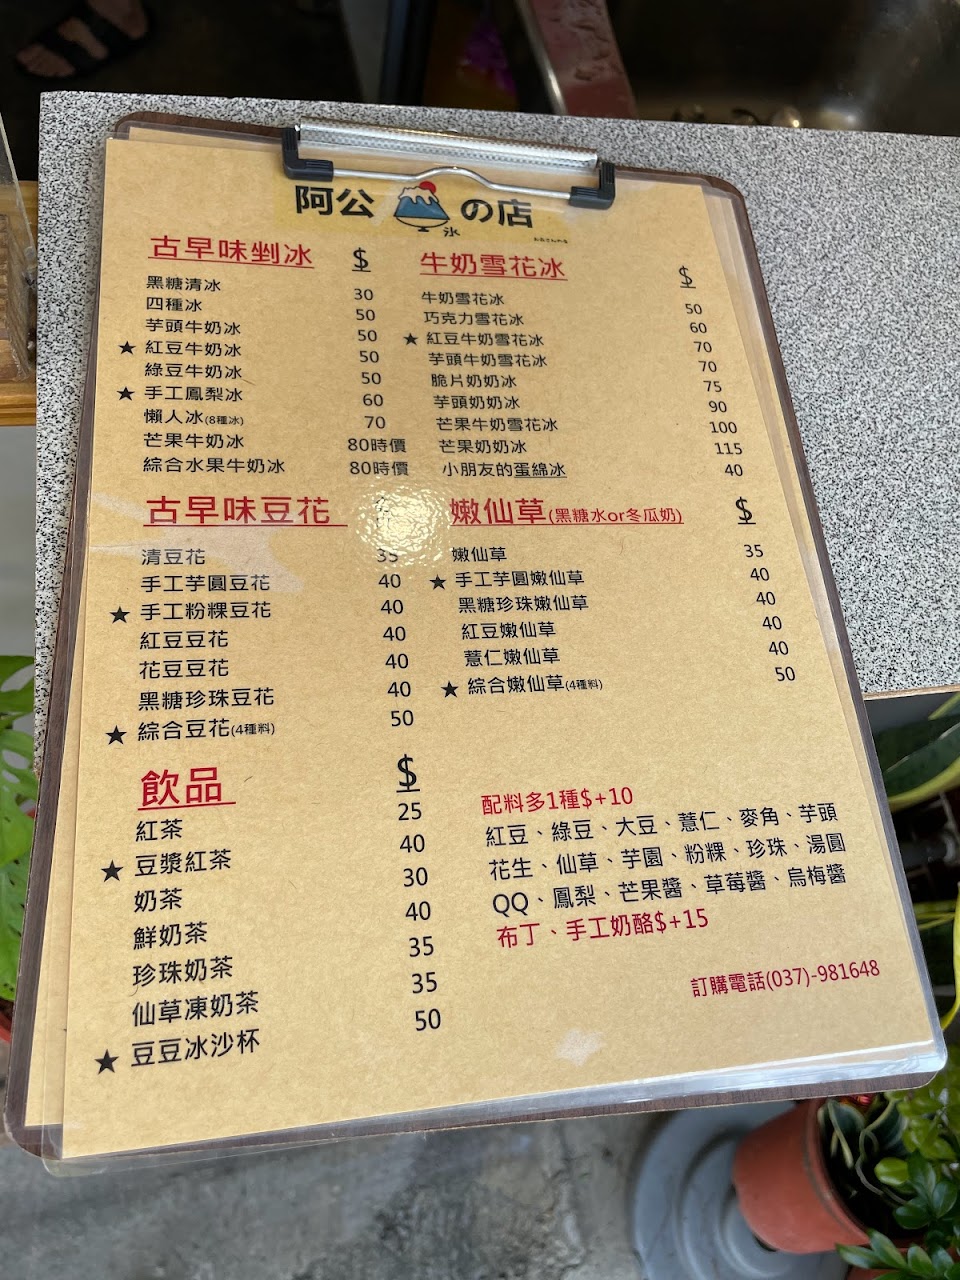 阿公 の店
氷
古早味剉冰 $
黑糖清冰 30
四種冰 50
芋頭牛奶冰 50
★ 紅豆牛奶冰 50
綠豆牛奶冰 50
★ 手工鳳梨冰 60
懶人冰(8種冰) 70
芒果牛奶冰 80時價
綜合水果牛奶冰 80時價
牛奶雪花冰 $
牛奶雪花冰 50
巧克力雪花冰 60
★ 紅豆牛奶雪花冰 70
芋頭牛奶雪花冰 70
脆片奶奶冰 75
芋頭奶奶冰 90
芒果牛奶雪花冰 100
芒果奶奶冰 115
小朋友的蛋綿冰 40
古早味豆花
清豆花 35
手工芋圓豆花 40
★ 手工粉粿豆花 40
紅豆豆花 40
花豆豆花 40
黑糖珍珠豆花 40
★ 綜合豆花(4種料) 50
嫩仙草(黑糖水or冬瓜奶) $
嫩仙草 35
★ 手工芋圓嫩仙草 40
黑糖珍珠嫩仙草 40
紅豆嫩仙草 40
薏仁嫩仙草 40
★ 綜合嫩仙草(4種料) 50
飲品 $
紅茶 25
★ 豆漿紅茶 40
奶茶 30
鮮奶茶 40
珍珠奶茶 35
仙草凍奶茶 35
★ 豆豆冰沙杯 50
配料多1種$+10
紅豆、綠豆、大豆、薏仁、麥角、芋頭
花生、仙草、芋園、粉粿、珍珠、湯圓
QQ、鳳梨、芒果醬、草莓醬、烏梅醬
布丁、手工奶酪$+15
訂購電話(037)-981648